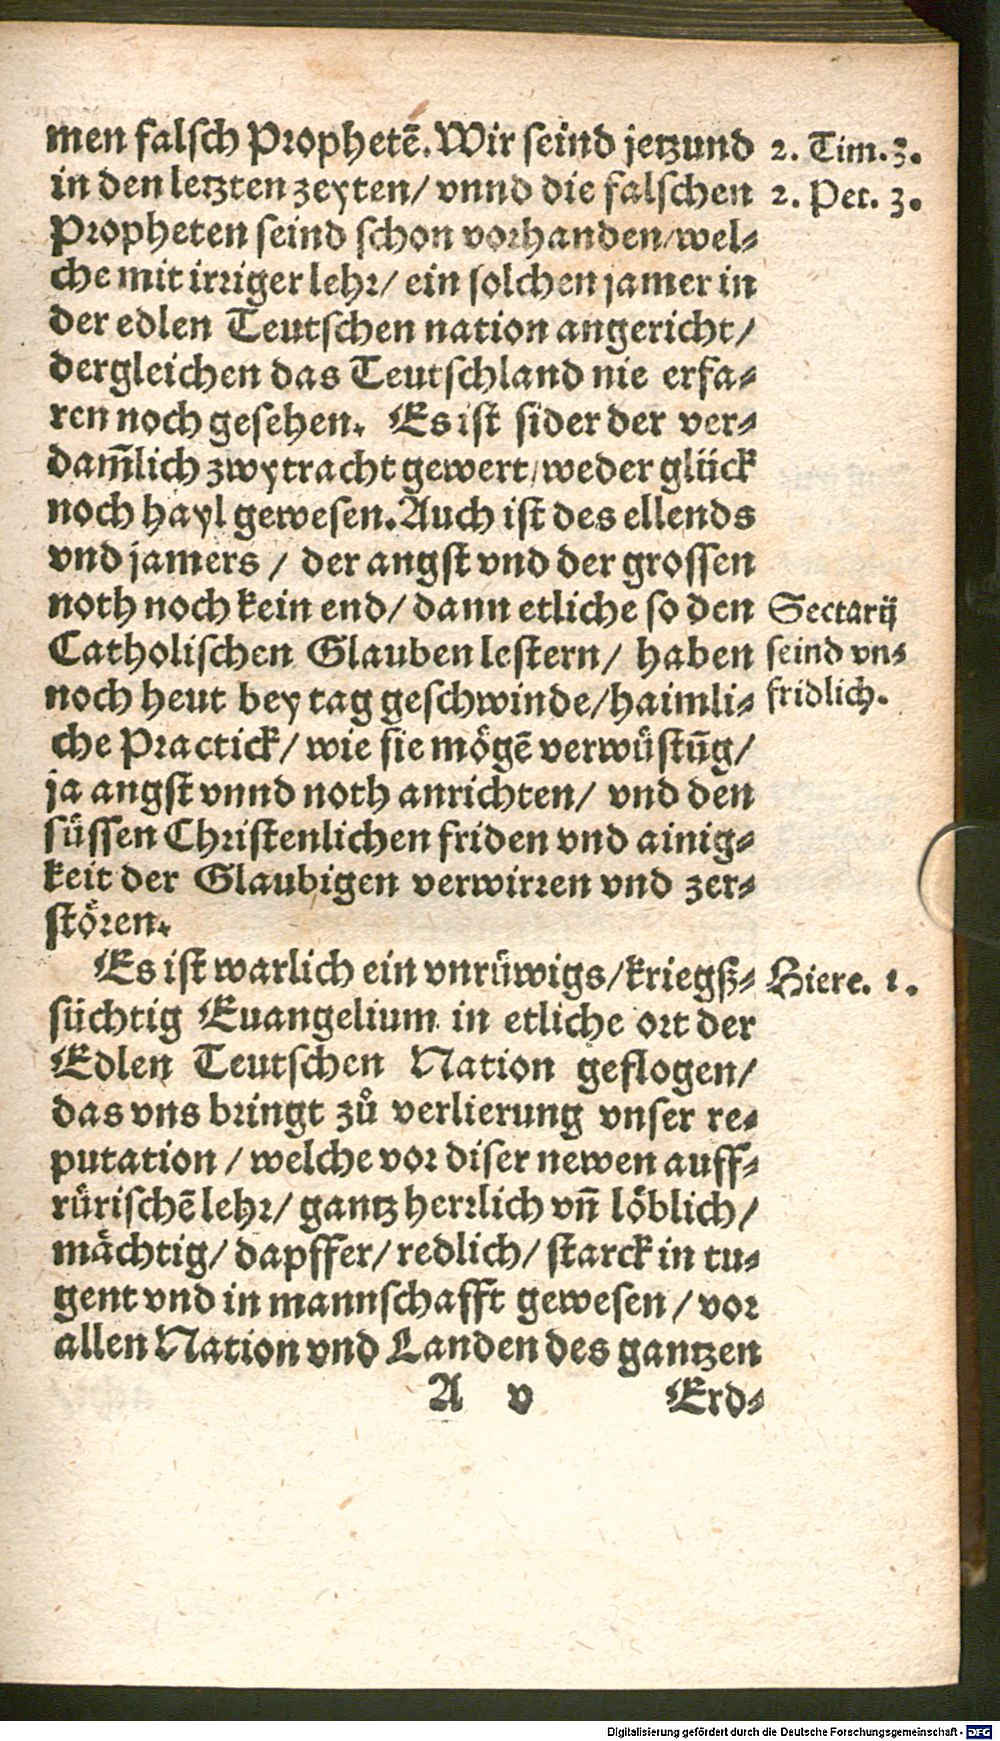 men falsch Prophetē. Wir seind jetzund
2. Tim. 3.
in den letzten zeyten/ vnnd die falschen
2. Pet. 3.
Propheten seind schon vorhanden/wel⸗
che mit irriger lehr/ ein solchen jamer in
der edlen Teutschen nation angericht/
dergleichen das Teutschland nie erfa⸗
ren noch gesehen. Es ist sider der ver⸗
dam̄lich zwytracht gewert/weder glück
noch hayl gewesen. Auch ist des ellends
vnd jamers / der angst vnd der grossen
noth noch kein end/ dann etliche so den
Catholischen Glauben lestern/ haben
noch heut bey tag geschwinde/haimli⸗
Sectarij
seind vn⸗
fridlich.
che Practick/ wie sie mögē verwüstūg/
ja angst vnnd noth anrichten/ vnd den
süssen Christenlichen friden vnd ainig⸗
keit der Glaubigen verwirren vnd zer⸗
stören.
Es ist warlich ein vnrüwigs/kriegß⸗
Hiere. 1.
süchtig Euangelium in etliche ort der
Edlen Teutschen Nation geflogen/
das vns bringt zů verlierung vnser re⸗
putation / welche vor diser newen auff⸗
rürischē lehr/ gantz herrlich vn̄ löblich/
mächtig/ dapffer/ redlich/ starck in tu⸗
gent vnd in mannschafft gewesen / vor
allen Nation vnd Landen des gantzen
A v Erd⸗
Digitalisierung gefördert durch die Deutsche Forschungsgemeinschaft - DFG